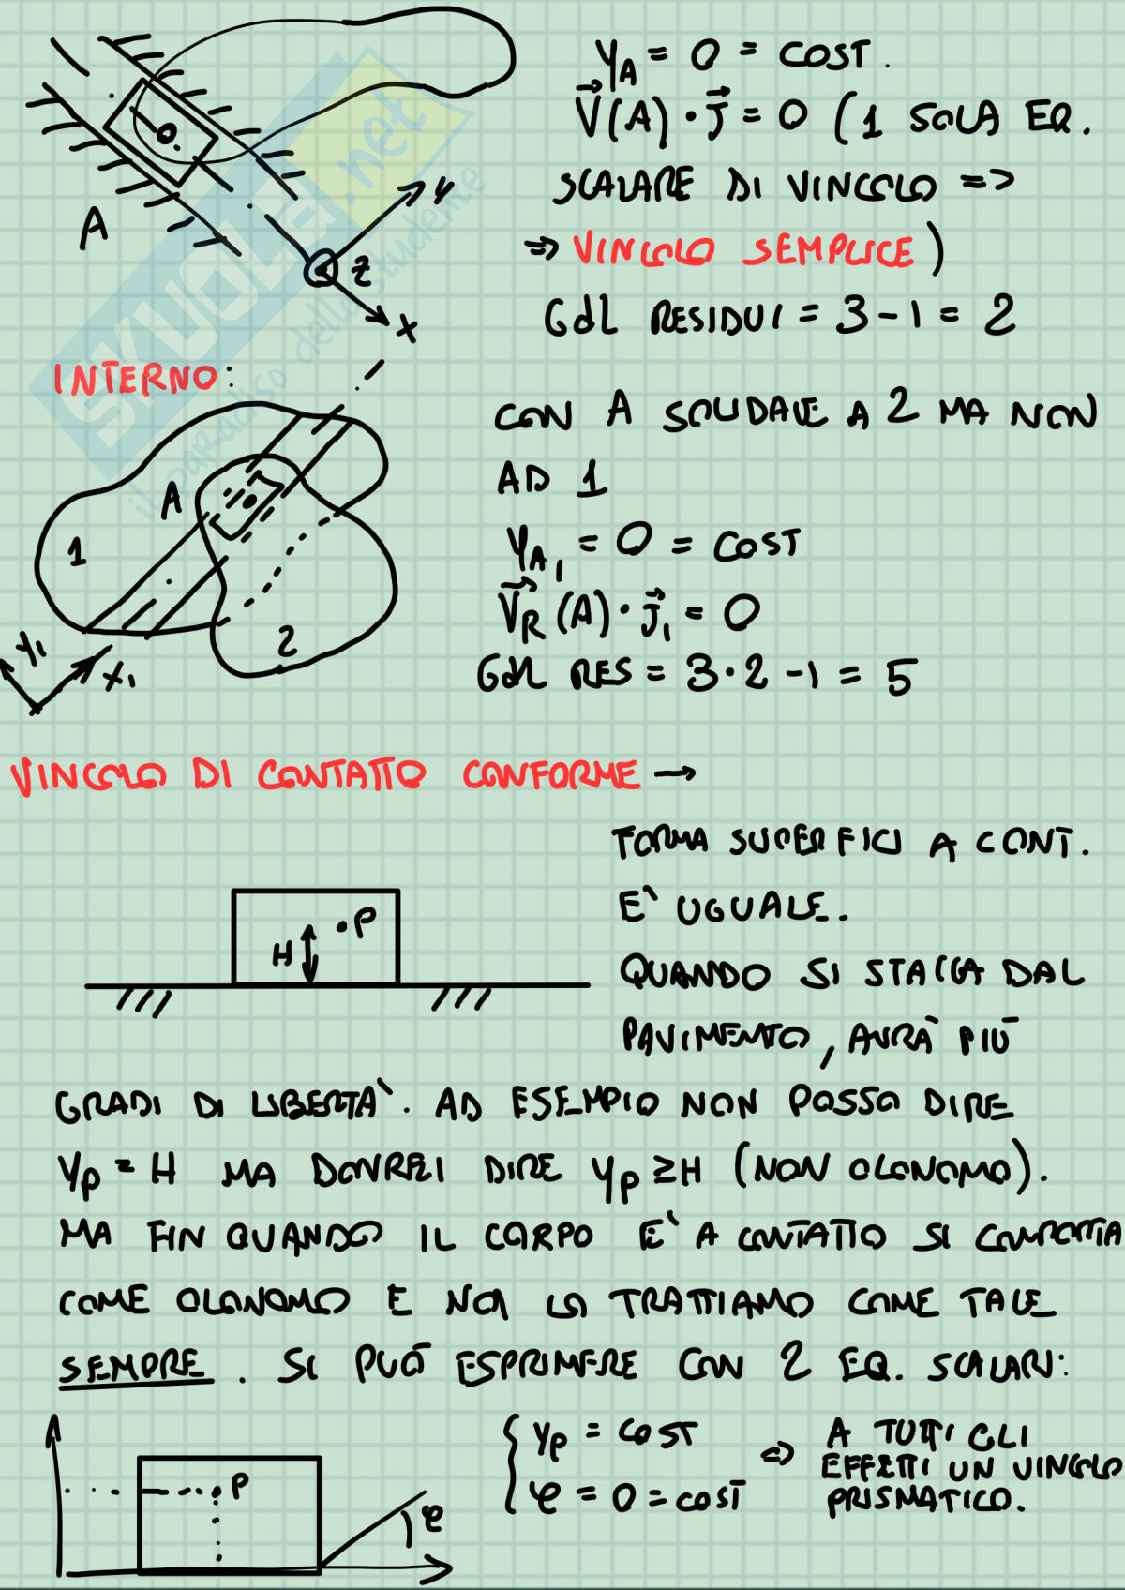 yA = 0 = COST.
V(A) · J = 0 (1 SOLA EQ.
SCALARE DI VINCOLO =>
=> VINCOLO SEMPLICE)
GdL RESIDUI = 3 - 1 = 2
A
y
z
x
INTERNO:
CON A SOLIDALE A 2 MA NON
AD 1
yA1 = 0 = COST
VR (A) · J1 = 0
GdL RES = 3 · 2 - 1 = 5
A
1
2
y1
x1
VINCOLO DI CONTATTO CONFORME →
FORMA SUPERFICI A CONT.
E' UGUALE.
QUANDO SI STACCA DAL
PAVIMENTO, AVRÀ PIÙ
H
P
GRADI DI LIBERTA'. AD ESEMPIO NON POSSO DIRE
yP = H MA DOVREI DIRE yP ≥ H (NON OLONOMO).
MA FIN QUANDO IL CORPO E' A CONTATTO SI COMPORTA
COME OLONOMO E NOI LO TRATTIAMO COME TALE
SEMPRE. SI PUÒ ESPRIMERE CON 2 EQ. SCALARI:
{ yP = COST
φ = 0 = COST
=> A TUTTI GLI
EFFETTI UN VINCOLO
PRISMATICO.
P
φ
SKUOLA.net
il paradiso dello studente